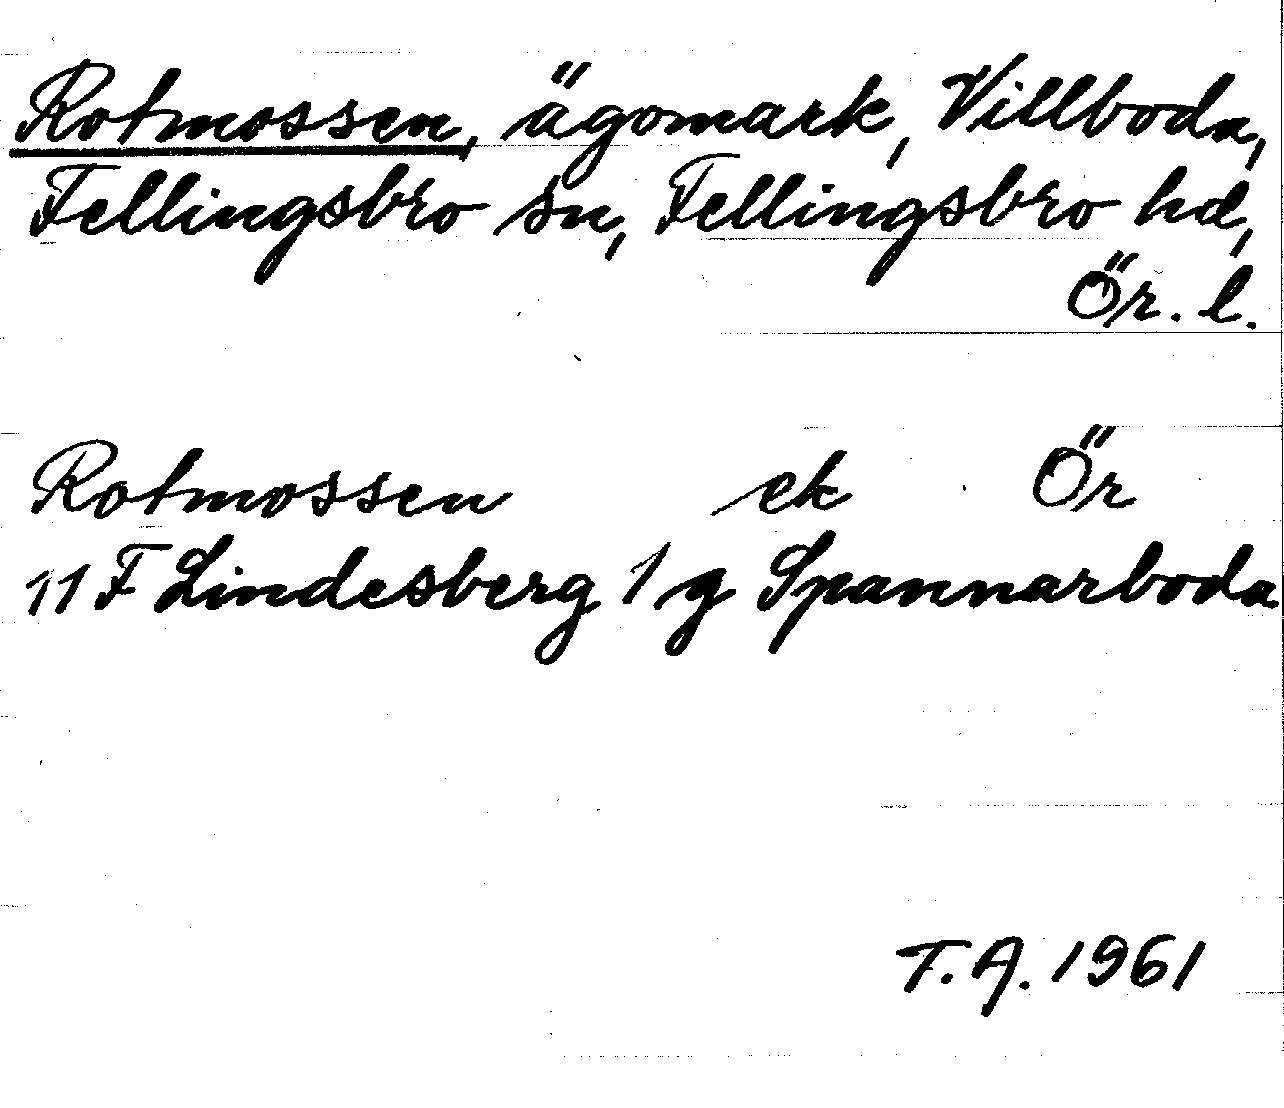 Rotmossen, ägomark, Villboda,
Fellingsbro sn, Fellingsbro hd,
Ör. l.
Rotmossen ek Ör
11 F Lindesberg 1 g Spannarboda
T.A. 1961